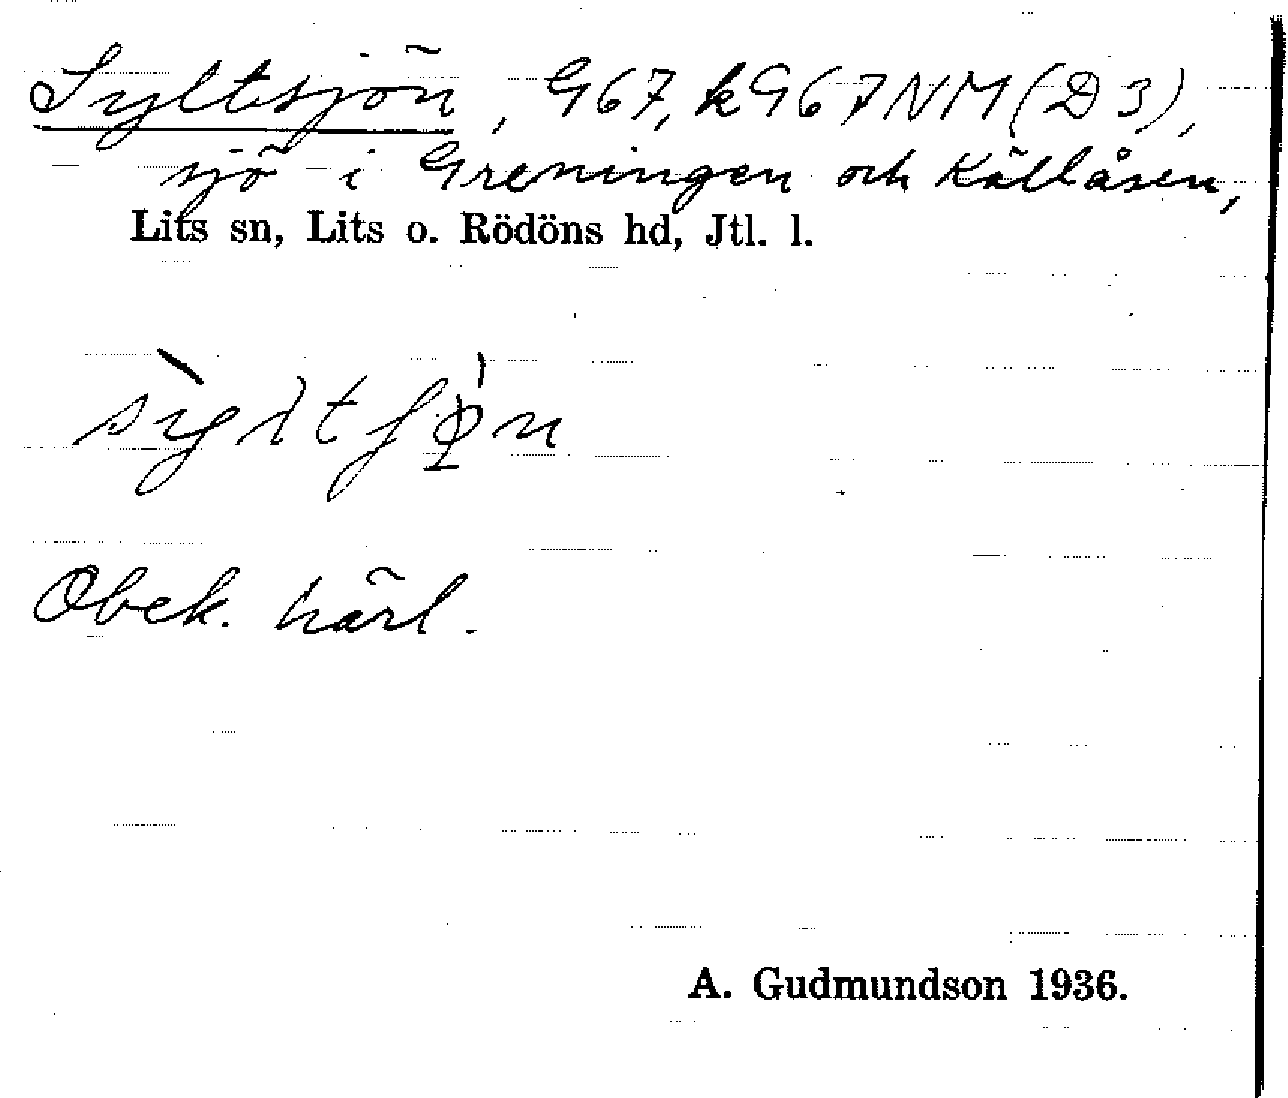 Syltsjön, G67, kG67NM(D3),
sjö i Greningen och Källåsen,
Lits sn, Lits o. Rödöns hd, Jtl. l.
Obek. härl.
A. Gudmundson 1936.